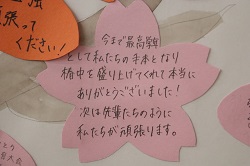 張って
ください!
今まで最高学年
として私たちの手本となり
橘中を盛り上げてくれて本当に
ありがとうございました!
次は先輩たちのように
私たちが頑張ります。